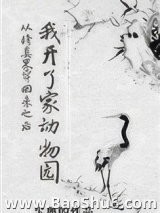 从修真界回来之后
我开了家动物园
www.BaoShu8.com